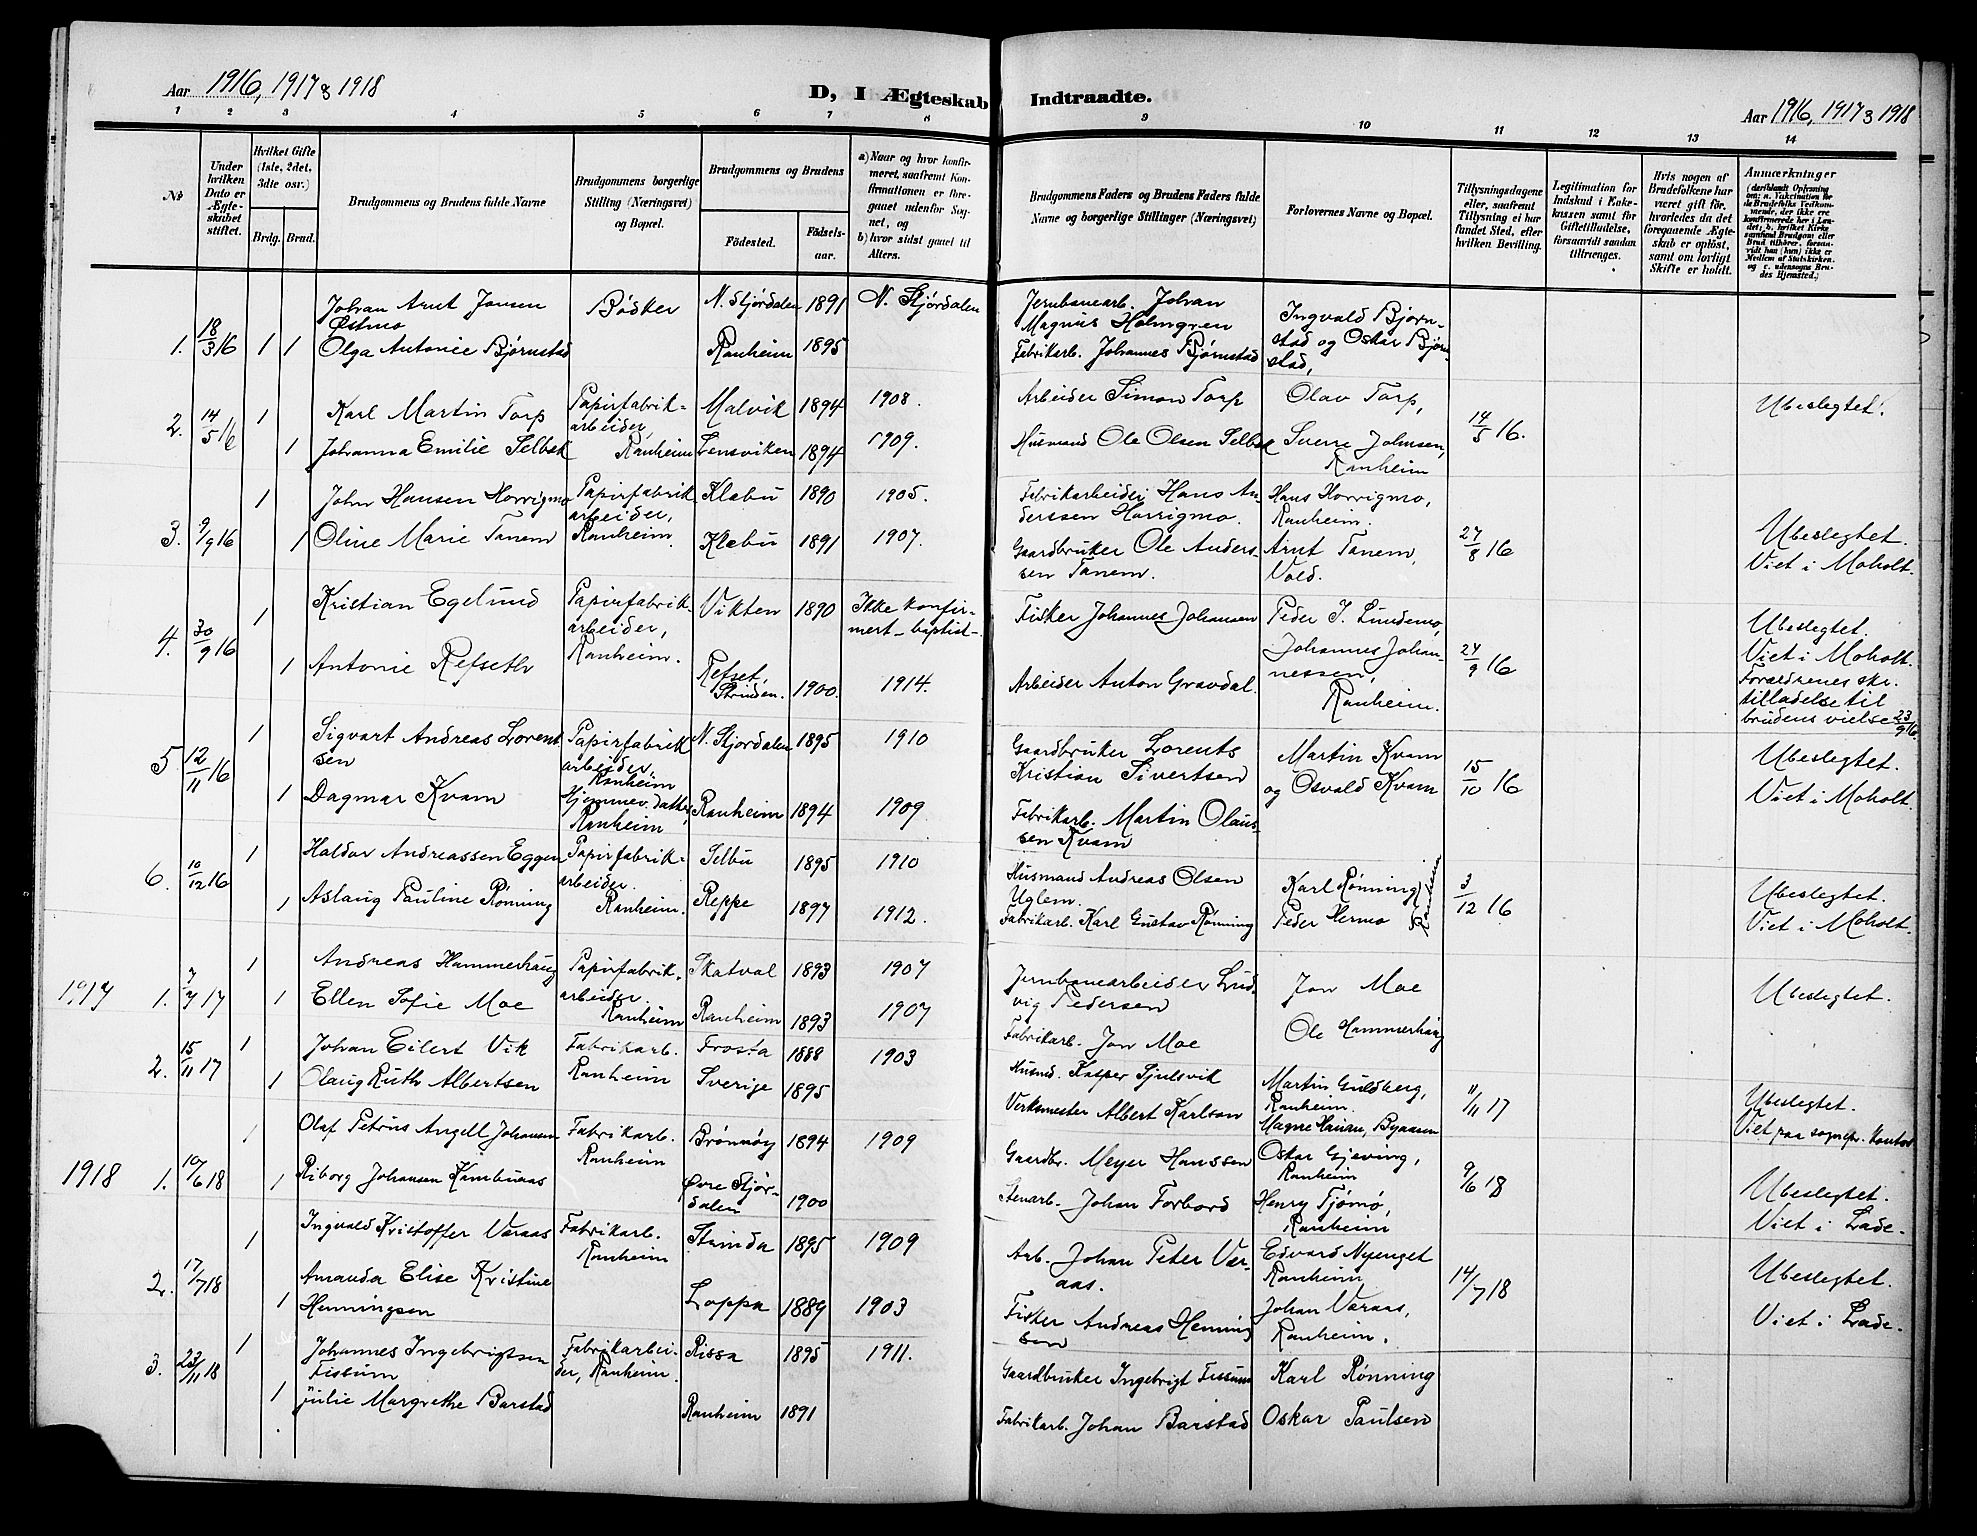 Aar 1916, 1917 & 1918
D, I Ægteskab Indtraadte.
Aar 1916, 1917 & 1918
1 2 3 4 5 6 7 8 9 10 11 12 13 14
No
Under hvilken Dato er Ægteskabet stiftet.
Hvilket Gifte (1ste, 2det, 3die osv.)
Brdg. Brud.
Brudgommens og Brudens fulde Navne
Brudgommens borgerlige Stilling (Næringsvei) og Bopæl.
Brudgommens og Brudens
Födested. Födselsaar.
a) Naar og hvor konfirmeret, saafremt Konfirmationen er foregaaet udenfor Sognet, og
b) hvor sidst gaaet til Alters.
Brudgommens Faders og Brudens Faders fulde Navne og borgerlige Stillinger (Næringsvei)
Forlovernes Navne og Bopæl.
Tillysningsdagene eller, saafremt Tillysning ei har fundet Sted, efter hvilken Bevilling.
Legitimation for Indskud i Enkekassen samt for Giftetilladelse, forsaavidt saadan tiltrænges.
Hvis nogen af Brudefolkene har været gift för, hvorledes da det foregaaende Ægteskab er oplöst, samt om lovligt Skifte er holdt.
Anmærkninger
1. 18/3 16 1 1
Johan Arnt Jonsen Østmo
Bödker
N. Stjördalen 1891
N. Stjördalen
Jernbanearb. Johan Magnus Holmgren
Ingvald Bjørnstad og Oskar Bjørnstad,
Olga Antonie Bjørnstad
Ranheim 1895
Fabrikarb. Johannes Bjørnstad
2. 14/5 16 1
Karl Martin Torp
Papirfabrikarbeider, Ranheim
Malvik 1894 1908.
Arbeider Simon Torp
Olav Torp,
14/5 16.
Ubeslegtet.
1 Johanna Emilie Selbek
Lensviken 1894 1909.
Husmand Ole Olsen Selbek
Sverre Johnsen, Ranheim
3. 9/9 16 1
John Hansen Horrigmo
Papirfabrikarbeider, Ranheim
Klæbu 1890 1905.
Fabrikarbeider Hans Anderssen Horrigmo.
Hans Horrigmo, Ranheim.
27/8 16
Ubeslegtet.
Viet i Moholt.
1 Oline Marie Tanem
Klæbu 1891 1907.
Gaardbruker Ole Anderssen Tanem.
Arnt Tanem, Vold.
4. 30/9 16 1
Kristian Egelund
Papirfabrikarbeider, Ranheim.
Vikten 1890
Ikke konfirmert - baptist -
Fisker Johannes Johansen
Peder J. Lundemo,
24/9 16
Ubeslegtet.
Viet i Moholt.
Forældrenes skr. tilladelse til brudens vielse 23/9 16.
1 Antonie Refseth
Refset, Strinden. 1900. 1914.
Arbeider Anton Gravdal.
Johannes Johannessen, Ranheim.
5. 12/11 16 1
Sigvart Andreas Lorentsen
Papirfabrikarbeider Ranheim
N. Stjørdalen 1895 1910
Gaardbruker Lorents Kristian Sivertsen
Martin Kvam og Osvald Kvam
15/10 16
Ubeslegtet.
Viet i Moholt.
1 Dagmar Kvam
Hjemmev. datter, Ranheim
Ranheim 1894 1909
Fabrikarb. Martin Olaussen Kvam
6. 10/12 16 1
Haldor Andreassen Eggen
Papirfabrikarbeider. Ranheim.
Selbu 1895 1910
Husmand Andreas Olsen Uglem.
Karl Rønning
3/12 16
Ubeslegtet.
Viet i Moholt.
1 Aslaug Pauline Rønning
Reppe 1897 1912.
Fabrikarb. Karl Gustav Rønning
Peder Hermo
1917 1. 7/7 17 1
Andreas Hammerhaug
Papirfabrikarbeider. Ranheim
Skatval 1893 1907
Jernbanearbeider Ludvig Pedersen
Jon Moe
Ubeslegtet.
1 Ellen Sofie Moe
Ranheim 1893 1907
Fabrikarb. Jon Moe
Ole Hammerhaug
2. 15/11 17 1
Johan Eilert Vik
Fabrikarb. Ranheim
Frosta 1888 1903
Husmd. Kasper Sjulsvik
Martin Guldberg, Ranheim.
11/11 17
Ubeslegtet.
Viet paa sognepr. kontor
1 Olaug Ruth Albertsen
Sverige 1895
Verksmester Albert Karlson
Magne Hanan, Byaasen
1918 1. 10/6 18 1
Olaf Petrus Angell Johansen
Fabrikarb. Ranheim
Brønnøy 1894 1909
Gaardbr. Meyer Hanssen
Oskar Gjeving, Ranheim
9/6 18
Ubeslegtet.
Viet i Lade.
1 Riborg Johansen Kambuaas
Øvre Stjørdalen 1900
Stenarb. Johan Forbord
Henry Tjømø, Ranheim
2. 17/7 18 1
Ingvald Kristoffer Varaas
Fabrikarb. Ranheim
Strinda 1895 1909
Arb. Johan Peter Varaas.
Edvard Nyenget Ranheim
14/7 18
Ubeslegtet.
Viet i Lade.
1 Amanda Elise Kristine Henningsen
Loppa 1889 1903
Fisker Andreas Henningsen
Johan Varaas, Ranheim.
3. 23/11 18 1
Johannes Ingebrigtsen Fissum
Fabrikarbeider, Ranheim.
Rissa 1895 1911.
Gaardbruker Ingebrigt Fissum
Karl Rønning
1 Julie Margrethe Barstad
Ranheim 1891
Fabrikarb. Johan Barstad
Oskar Paulsen